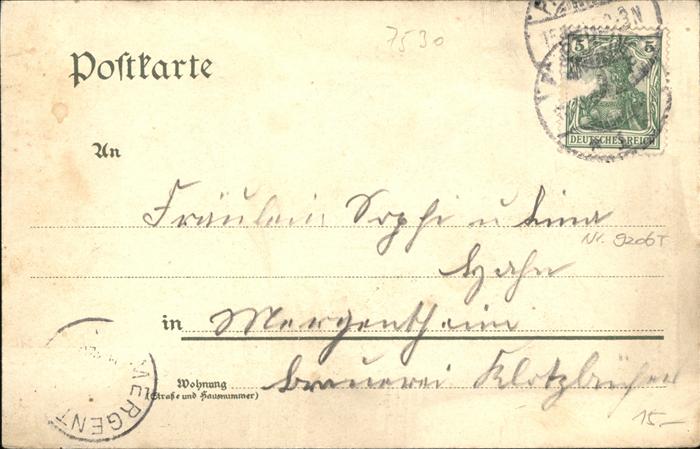 7530
5 5
DEUTSCHES REICH
Postkarte
An
Fräulein Sophi u Lina
Nr. 9206T
Hahn
in Mergentheim
Wohnung
(Straße und Hausnummer)
Brauerei Klotzbücher
MERGENT
15.-